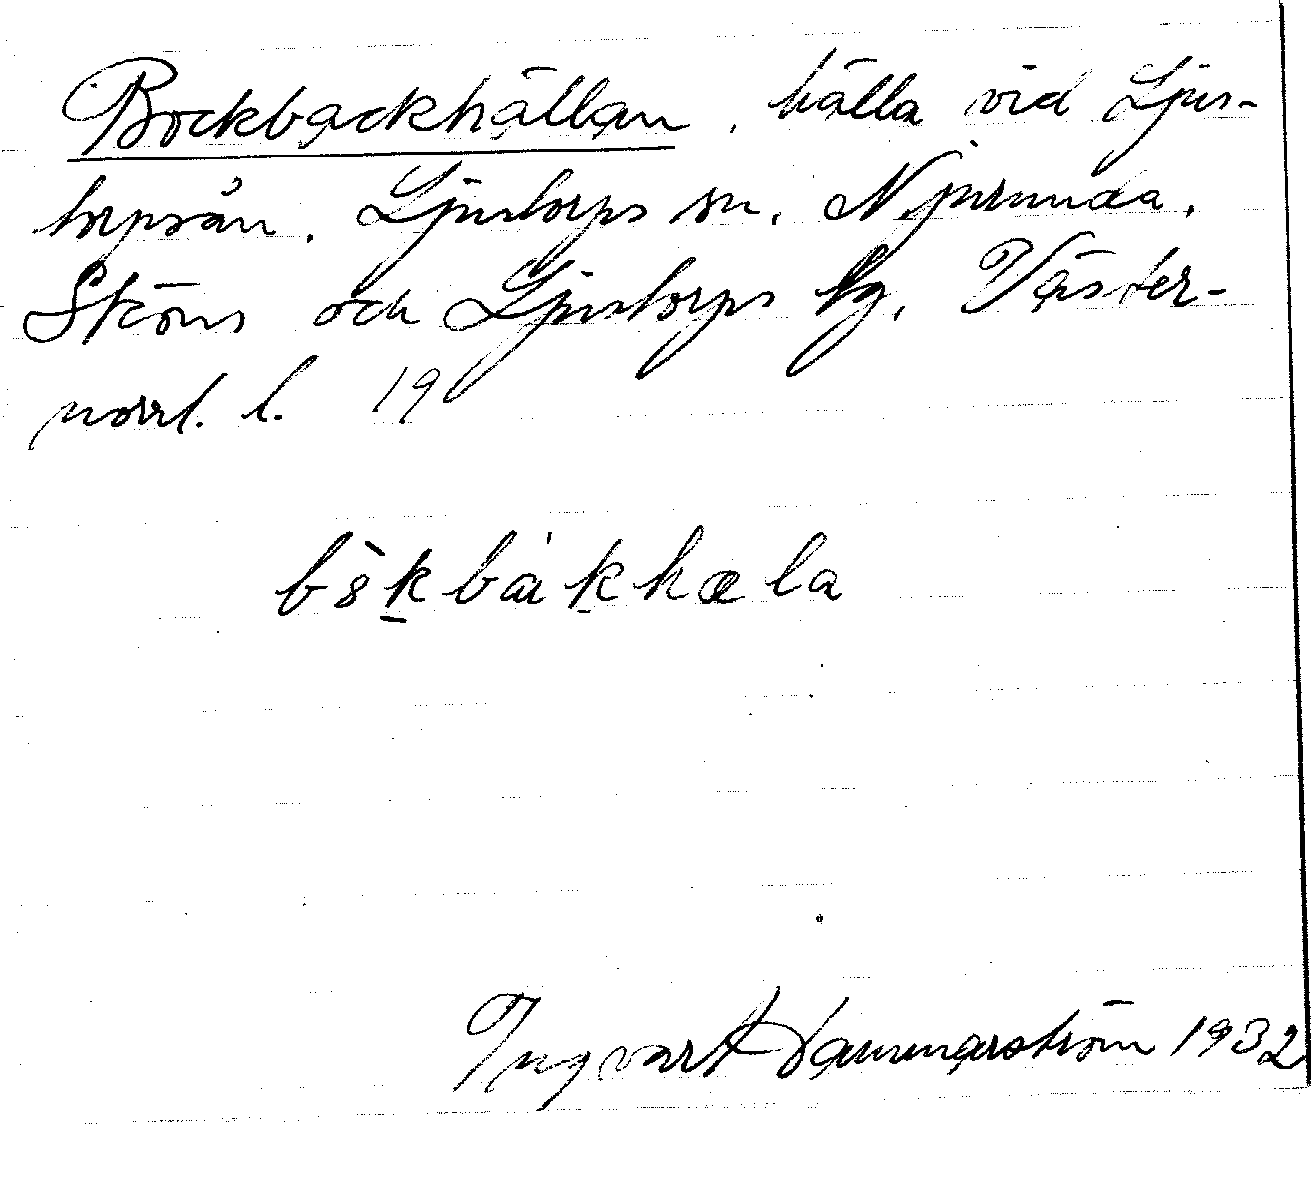 Bockbackhällan, hälla vid Ljus-
torpsån, Ljustorps sn, Njurunda,
Sköns och Ljustorps tg, Väster-
norrl. l. 19
bȣ̀kbákhæla
Ingvar Hammarström 1932